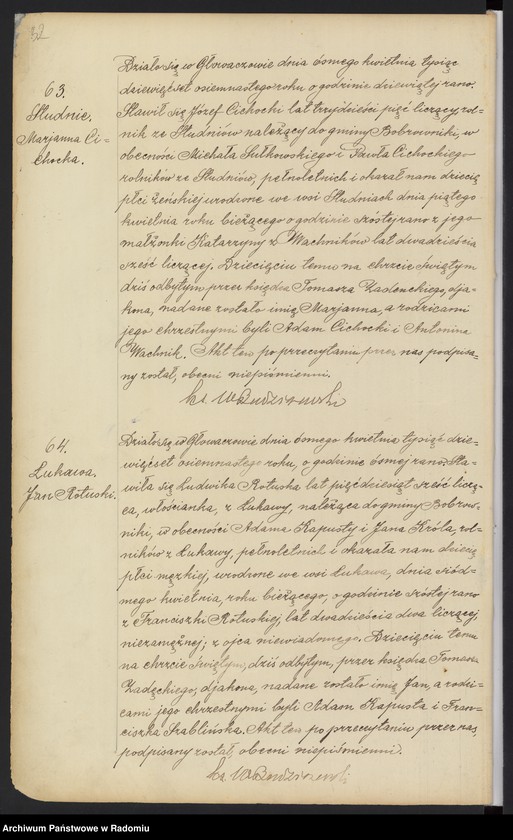 32
63.
Studnie.
Marjanna Ci=
chocka.
Działo się w Głowaczowie dnia ósmego kwietnia tysiąc
dziewięćset osiemnastego roku o godzinie dziewiątej rano.
Stawił się Józef Cichocki lat trzydzieści pięć liczący, rol=
nik ze Studniów należący do gminy Bobrowniki, w
obecności Michała Sułkowskiego i Pawła Cichockiego
rolników ze Studniów, pełnoletnich i okazał nam dziecię
płci żeńskiej urodzone we wsi Studniach dnia piątego
kwietnia roku bieżącego o godzinie szóstej rano z jego
małżonki Katarzyny z Wachników lat dwadzieścia
sześć liczącej. Dziecięciu temu na chrzcie świętym
dziś odbytym, przez księdza Tomasza Zadeckiego, dja=
kona, nadane zostało imię Marjanna, a rodzicami
jego chrzestnymi byli Adam Cichocki i Antonina
Wachnik. Akt ten po przeczytaniu przez nas podpisa=
ny został, obecni niepiśmienni.
ks.
64.
Łukawa.
Jan Rótuski.
Działo się w Głowaczowie dnia ósmego kwietnia tysiąc dzie=
więćset osiemnastego roku, o godzinie ósmej rano. Sta=
wiła się Ludwika Rótuska lat pięćdziesiąt sześć liczą=
ca, włościanka, z Łukawy, należąca do gminy Bobrow=
niki, w obecności Adama Kapusty i Jana Króla, rol=
ników z Łukawy, pełnoletnich i okazała nam dziecię
płci męzkiej, urodzone we wsi Łukawa, dnia siód=
mego kwietnia, roku bieżącego, o godzinie szóstej rano
z Franciszki Rótuskiej, lat dwadzieścia dwa liczącej,
niezamężnej; z ojca niewiadomego. Dziecięciu temu
na chrzcie świętym, dziś odbytym, przez księdza Tomasza
Zadeckiego, djakona, nadane zostało imię Jan, a rodzi=
cami jego chrzestnymi byli Adam Kapusta i Fran=
ciszka Szablińska. Akt ten po przeczytaniu przez nas,
podpisany został, obecni niepiśmienni.
ks.
Archiwum Państwowe w Radomiu